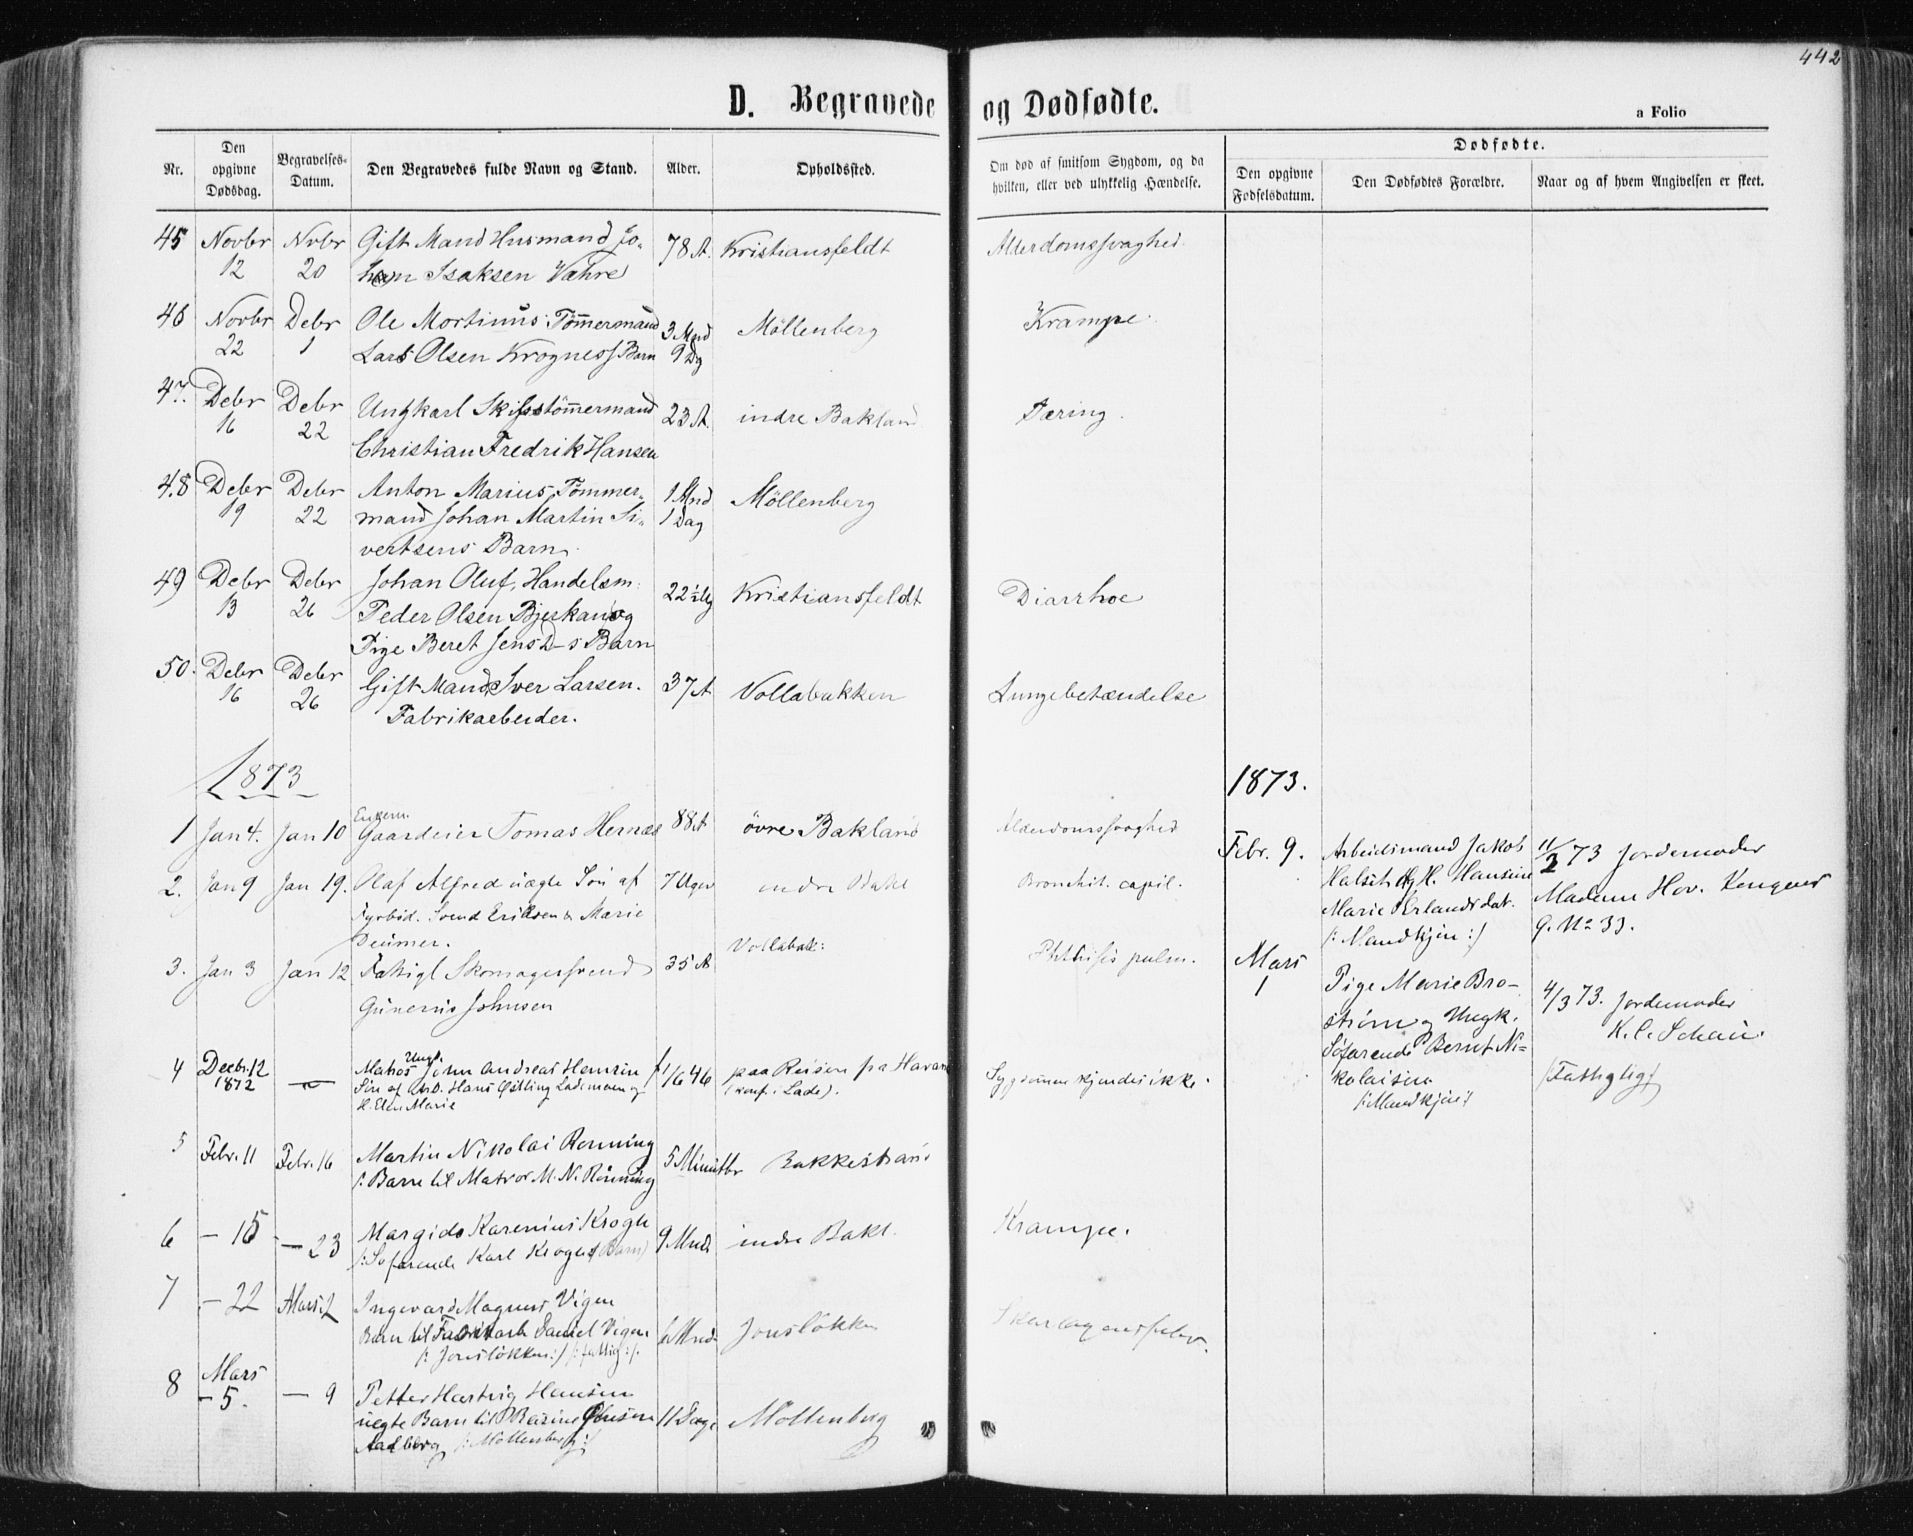 442
D. Begravede og Dødfødte.
a Folio
Nr.
Den opgivne Dødsdag.
Begravelses-Datum.
Den Begravedes fulde Navn og Stand.
Alder.
Opholdssted.
Om død af smitsom Sygdom, og da hvilken, eller ved ulykkelig Hændelse.
Dødfødte.
Den opgivne Fødselsdatum.
Den Dødfødtes Forældre.
Naar og af hvem Angivelsen er skeet.
45 Novbr 12 Nvbr 20 Gift Mand Husmand Jo-
han Isaksen Væhre 78 A. Kristiansfeldt Alderdomssvaghed.
46 Novbr 22 Debr 1 Ole Mortinus Tömmermand
Lars Olsen Krogness Barn 3 Mnd 9 Dg Möllenberg Krampe.
47. Debr 16 Debr 22 Ungkarl Skibstömmermand
Christian Fredrik Hansen 23 A. indre Bakland Tæring.
48 Debr 19 Debr 22 Anton Marius, Tömmer-
mand Johan Martin Si-
vertsens Barn 1 Mnd 1 Dag Möllenberg
49 Debr 13 Debr 26 Johan Oluf, Handelsm.
Peder Olsen Bjerkan og
Pige Beret Jensd-s Barn 22½ Ug Kristiansfeldt Diarrhoe
50. Debr 16 Debr 26 Gift Mand Iver Larsen.
Fabrikarbeider. 37 A Vollabakken Lungebetændelse
1873
1873.
1 Jan 4. Jan 10 Enkem.
Gaardeier Tomas Hernæs 88 A øvre Bakland Alderdomssvaghed
2. Jan 9 Jan 19. Olaf Alfred uægte Søn af
Fyrbød. Svend Eriksen & Marie 7 Uger indre Bakl Bronchit. capil.
3. Jan 3 Jan 12 Fattigl Skomagersvend
Gunerius Johnsen 35 A Vollabak: Phthisis pulm.
4 Decbr. 12 1872 — Ungk.
Matros John Andreas Hansen
Søn af Arb. Hans Østling Ladesmoen og
H. Elen Marie 1/6 46 paa Reisen fra Havana
(konf. i Lade). Sygdommen kjendes ikke.
5 Febr. 11 Febr. 16 Martin Nikolai Rønning
/: Barn til Matros M. N. Rönning 5 Minutter Bakkestrand
6 — 15 — 23 Margido Karenius Krogh
/: Søfarende Karl Kroghs Barn 9 Mnd. indre Bakl. Krampe.
7 — 22 Mars 2 Ingevard Magnus Vigen
Barn til Fabrikarb Daniel Vigen
/: Jonsløkken :/ /: fattig :/. 6 Mnd. Jonsløkken Skarlagensfeber.
8 Mars — 5. — 9 Petter Hartvig Hansen
uegte Barn til
/: Möllenberg :/ 11 Dage Möllenberg
Febr. 9. Arbeidsmand Jakob
Halseth og H. Hansine
Marie Erlandsdat.
/: Mandkjön :/
11/2 73 Jordemoder
Madam Hov. Kongens
G. No 33.
Mars 1 Pige Marie Bro-
strøm og Ungk.
Søfarende Bernt Ni-
kolaisen
/: Mandkjön :/
4/3 73. Jordemoder
K. C. Schau.
/Fattiglig/